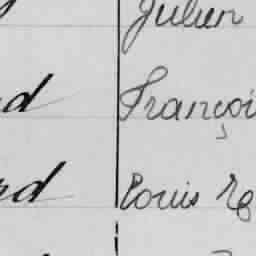 Julien
d Françoi
rd Louis Re